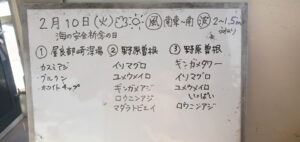 2月10日(火) 風 南東〜南 波 2〜1.5m
うねり
海の安全祈念の日
① 屋良部崎深場 ② 野原曽根 ③ 野原曽根
カスミアジ イソマグロ ギンガメタワー
グルクン ユメウメイロ イソマグロ
ホワイトチップ ギンガメアジ ユメウメイロ
ロウニンアジ いっぱい
マダラトビエイ ロウニンアジ